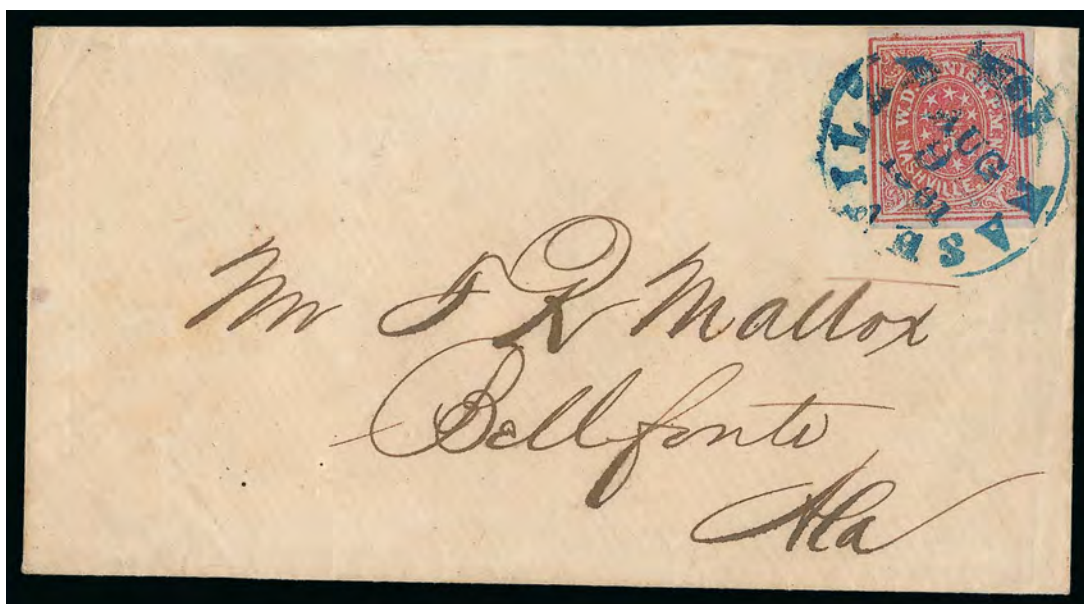 W.D. M'NISH P.M.
NASHVILLE
NASHVILLE TES
AUG
9
1861
Mr T R Mattox
Bellfonte
Ala